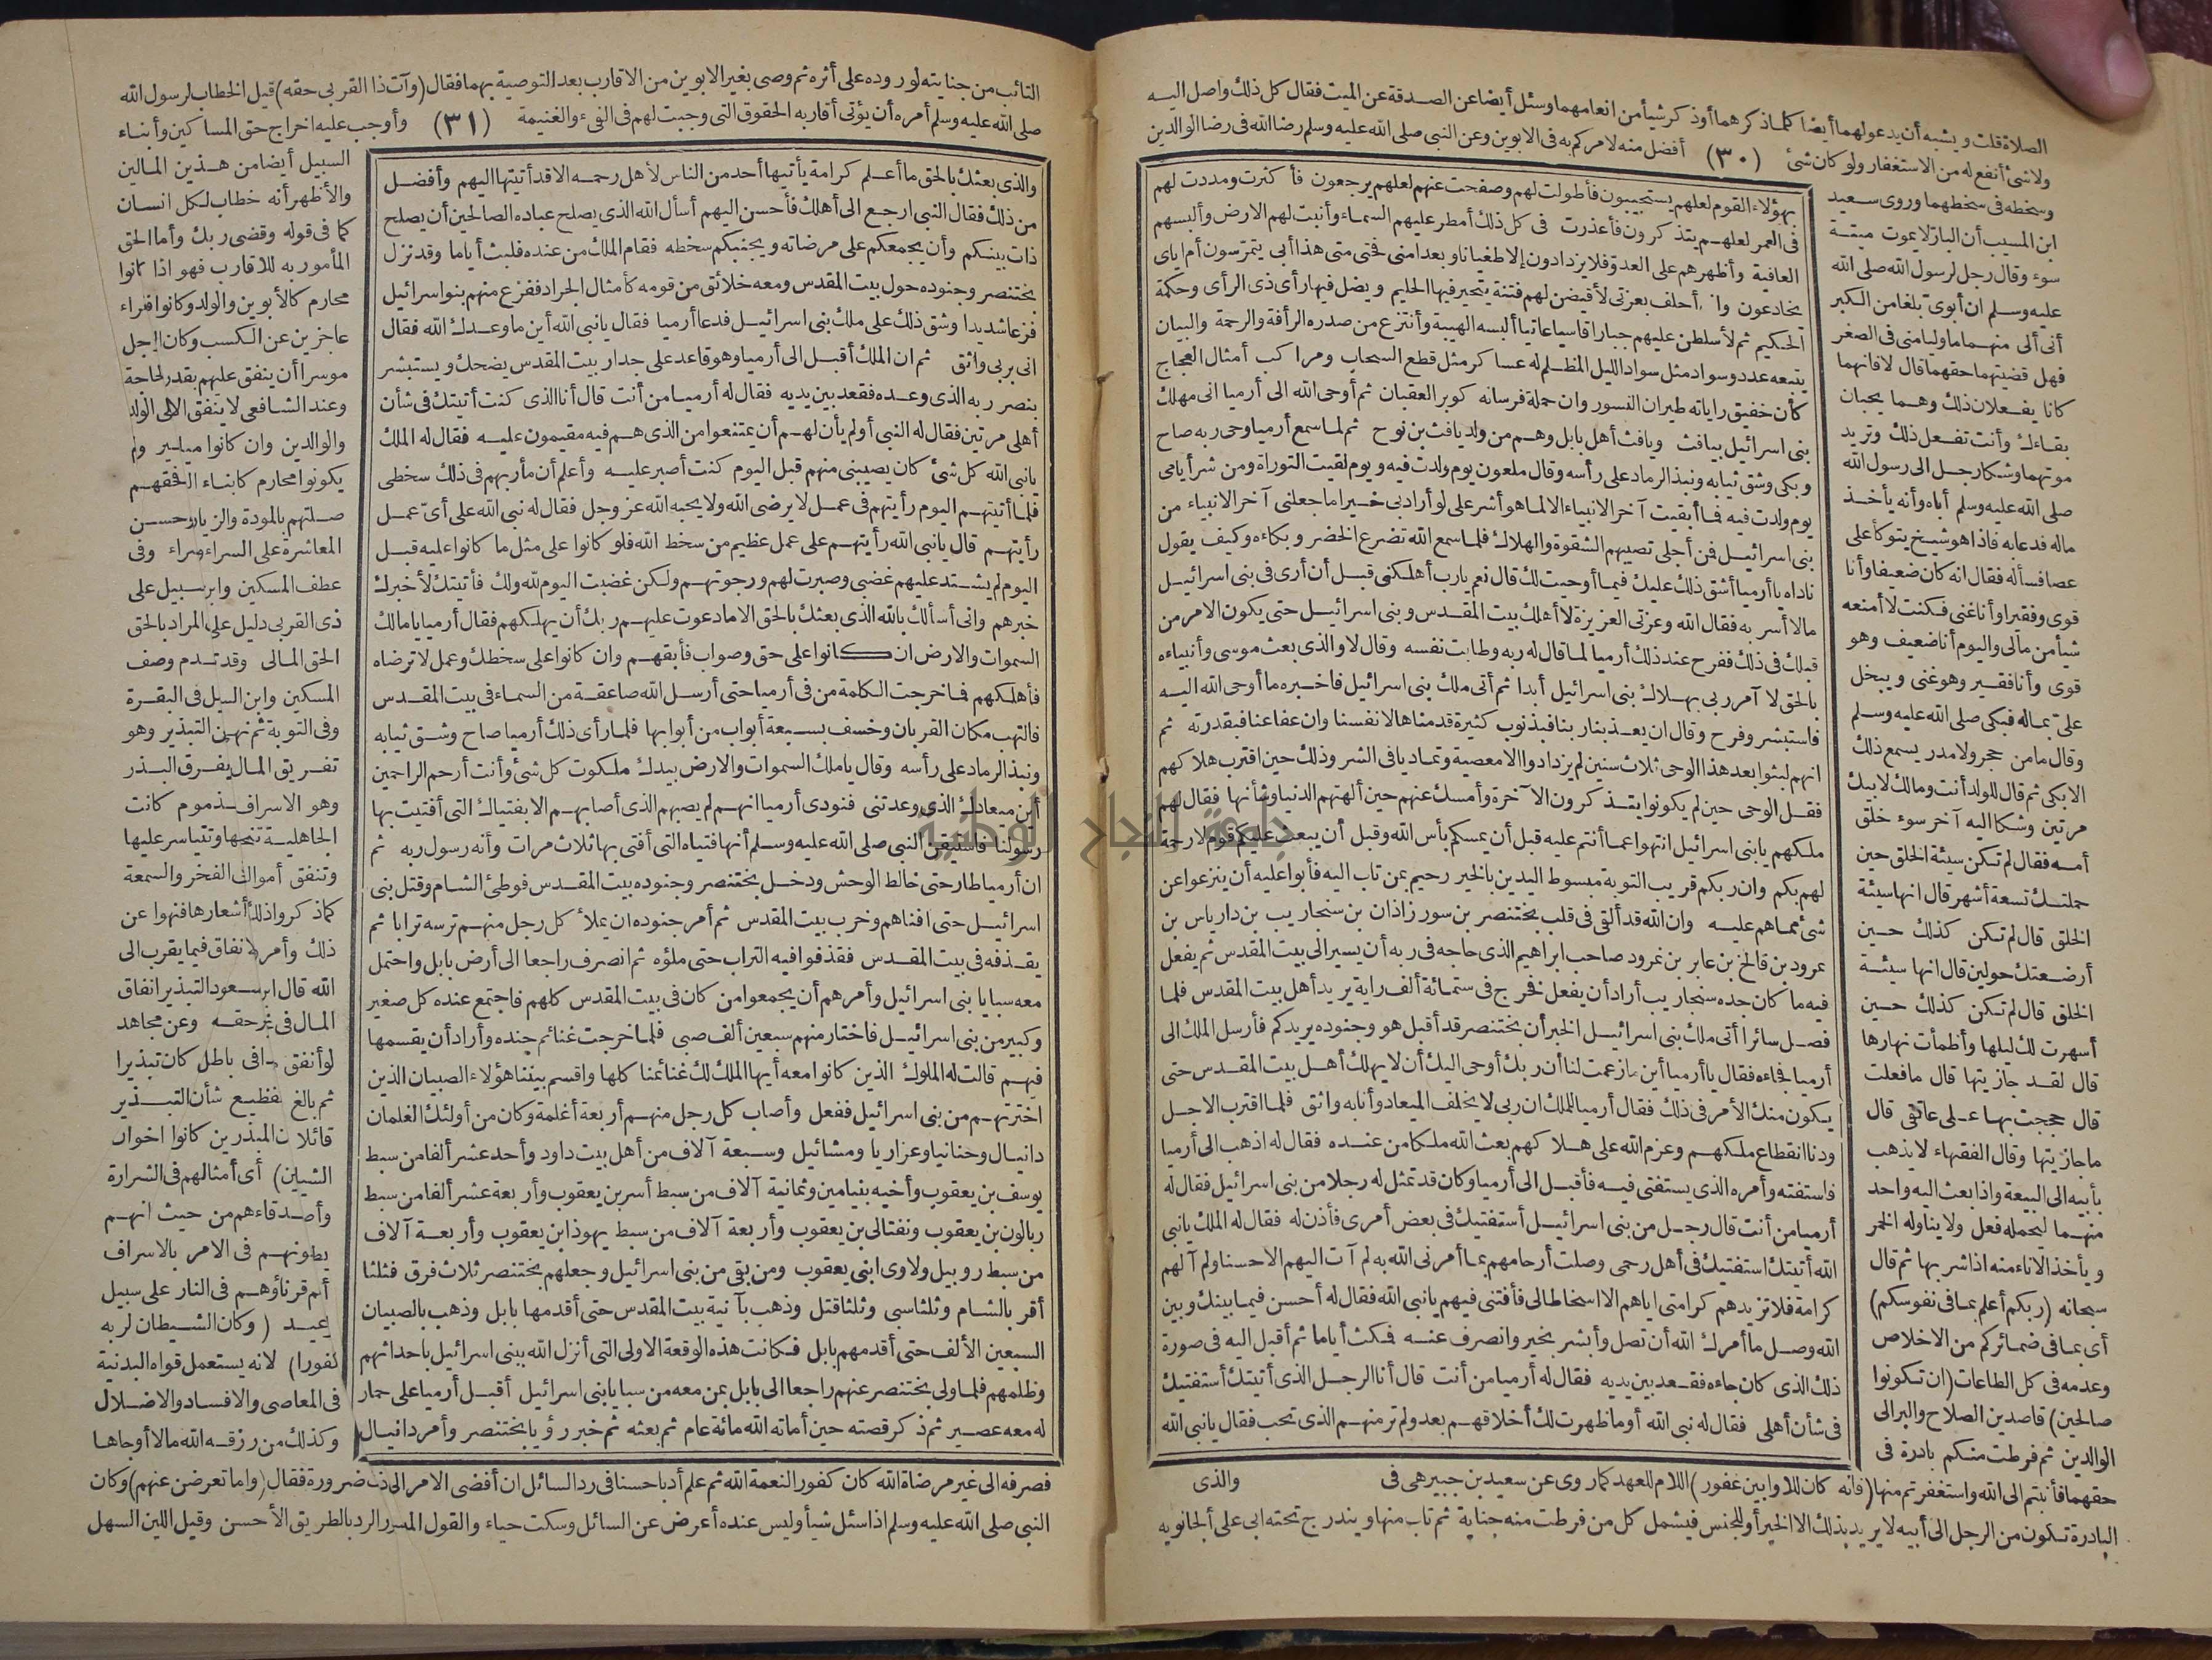 الصلاة قلت ويشبه أن يدعو لهما أيضا كلما ذكرهما أو ذكر شيأ من انعامهما وسئل أيضا عن الصدقة عن الميت فقال كل ذلك واصل اليه
ولا شئ أنفع له من الاستغفار ولو كان شئ (٣٠) أفضل منه لامركم به فى الابوين وعن النبى صلى الله عليه وسلم رضا الله فى رضا الوالدين
وسخطه فى سخطهما وروى سعيد
ابن المسيب أن البار لا يموت ميتة
سوء وقال رجل لرسول الله صلى الله
عليه وسلم ان أبوىّ بلغا من الكبر
أنى ألى منهما ما وليا منى فى الصغر
فهل قضيتهما حقهما قال لا فانهما
كانا يفعلان ذلك وهما يحبان
بقاءك وأنت تفعل ذلك وتريد
موتهما وشكا رجل الى رسول الله
صلى الله عليه وسلم أباه وأنه يأخذ
ماله فدعا به فاذا هو شيخ يتوكأ على
عصا فسأله فقال انه كان ضعيفا وأنا
قوى وفقيرا وأنا غنى فكنت لا أمنعه
شيأ من مالى واليوم أنا ضعيف وهو
قوى وأنا فقير وهو غنى ويبخل
علىّ بماله فبكى صلى الله عليه وسلم
وقال ما من حجر ولا مدر يسمع ذلك
الا بكى ثم قال للولد أنت ومالك لابيك
مرتين وشكا اليه آخر سوء خلق
أمه فقال لم تكن سيئة الخلق حين
حملتك تسعة أشهر قال انها سيئة
الخلق قال لم تكن كذلك حين
أرضعتك حولين قال انها سيئة
الخلق قال لم تكن كذلك حين
أسهرت لك ليلها وأظمأت نهارها
قال لقد جازيتها قال ما فعلت
قال حججت بها على عاتقى قال
ما جازيتها وقال الفقهاء لا يذهب
بأبيه الى البيعة واذا بعث اليه واحد
منهما ليحمله فعل ولا يناوله الخمر
ويأخذ الاناء منه اذا شربها ثم قال
سبحانه (ربكم أعلم بما فى نفوسكم)
أى بما فى ضمائركم من الاخلاص
وعدمه فى كل الطاعات (ان تكونوا
صالحين) قاصدين الصلاح والبر الى
الوالدين ثم فرطت منكم بادرة فى
حقهما فأنبتم الى الله واستغفرتم منها (فانه كان للاوابين غفورا) اللام للعهد كما روى عن سعيد بن جبير هى فى
البادرة تكون من الرجل الى أبيه لا يريد بذلك الا الخير أو للجنس فيشمل كل من فرطت منه جناية ثم تاب منها ويندرج تحته
بهؤلاء القوم لعلهم يستجيبون فأطولت لهم وصفحت عنهم لعلهم يرجعون فأكثرت ومددت لهم
فى العمر لعلهم يتذكرون فأعذرت فى كل ذلك أمطر عليهم السماء وأنبت لهم الارض وألبسهم
العافية وأظهرهم على العدو فلا يزدادون إلا طغيانا وبعدا منى فحتى متى هذا أبى يتمرسون أم اياى
يخادعون أحلف بعزتى لأقيضن لهم فتنة يتحير فيها الحليم ويضل فيها رأى ذى الرأى وحكمة
الحكيم ثم لأسلطن عليهم جبارا قاسيا عاتيا ألبسه الهيبة وأنتزع من صدره الرأفة والرحمة والبيان
يتبعه عدد وسواد مثل سواد الليل المظلم له عساكر مثل قطع السحاب ومراكب أمثال العجاج
كأن خفيق راياته طيران النسور وان حملة فرسانه كوبر العقبان ثم أوحى الله الى أرميا انى مهلك
بنى اسرائيل بيافث ويافث أهل بابل وهم من ولد يافث بن نوح ثم لما سمع أرميا وحى ربه صاح
وبكى وشق ثيابه ونبذ الرماد على رأسه وقال ملعون يوم ولدت فيه ويوم لقيت التوراة ومن شر أيامى
يوم ولدت فيه فما أبقيت آخر الانبياء الا لما هو أشر على لو أراد بى خيرا ما جعلنى آخر الانبياء من
بنى اسرائيل فمن أجلى تصيبهم الشقوة والهلاك فلما سمع الله تضرع الخضر وبكاءه وكيف يقول
ناداه يا أرميا أشق ذلك عليك فيما أوحيت لك قال نعم يا رب أهلكنى قبل أن أرى فى بنى اسرائيل
ما لا أسر به فقال الله وعزتى العزيزة لا أهلك بيت المقدس وبنى اسرائيل حتى يكون الامر من
قبلك فى ذلك ففرح عند ذلك أرميا لما قال له ربه وطابت نفسه وقال لا والذى بعث موسى وأنبياءه
بالحق لا آمر ربى بهلاك بنى اسرائيل أبدا ثم أتى ملك بنى اسرائيل فاخبره ما أوحى الله اليه
فاستبشر وفرح وقال ان يعذبنا ربنا فبذنوب كثيرة قدمناها لانفسنا وان عفا عنا فبقدرته ثم
انهم لبثوا بعد هذا الوحى ثلاث سنين لم يزدادوا الا معصية وتماديا فى الشر وذلك حين اقترب هلاكهم
فقل الوحى حين لم يكونوا يتذكرون الآخرة وأمسك عنهم حين ألهتهم الدنيا وشأنها فقال لهم
ملكهم يا بنى اسرائيل انتهوا عما أنتم عليه قبل أن يمسكم بأس الله وقبل أن يبعث عليكم قوم لا رحمة
لهم بكم وان ربكم قريب التوبة مبسوط اليدين بالخير رحيم بمن تاب اليه فأبوا عليه أن ينزعوا عن
شئ مما هم عليه وان الله قد ألقى فى قلب بختنصر بن سورزاذان بن سنجاريب بن دارياس بن
نمرود بن فالخ بن عابر بن نمرود صاحب ابراهيم الذى حاجه فى ربه أن يسير الى بيت المقدس ثم يفعل
فيه ما كان جده سنجاريب أراد أن يفعل فخرج فى ستمائة ألف راية يريد أهل بيت المقدس فلما
فصل سائرا أتى ملك بنى اسرائيل الخبر أن بختنصر قد أقبل هو وجنوده يريدكم فأرسل الملك الى
أرميا فجاءه فقال يا أرميا أين ما زعمت لنا أن ربك أوحى اليك أن لا يهلك أهل بيت المقدس حتى
يكون منك الأمر فى ذلك فقال أرميا للملك ان ربى لا يخلف الميعاد وأنا به واثق فلما اقترب الاجل
ودنا انقطاع ملكهم وعزم الله على هلاكهم بعث الله ملكا من عنده فقال له اذهب الى أرميا
فاستفته وأمره الذى يستفتى فيه فأقبل الى أرميا وكان قد تمثل له رجلا من بنى اسرائيل فقال له
أرميا من أنت قال رجل من بنى اسرائيل أستفتيك فى بعض أمرى فأذن له فقال له الملك يا نبى
الله أتيتك استفتيك فى أهل رحمى وصلت أرحامهم بما أمرنى الله به لم آت اليهم الا حسنا ولم آلهم
كرامة فلا تزيدهم كرامتى اياهم الا اسخاطا لى فأفتنى فيهم يا نبى الله فقال له أحسن فيما بينك وبين
الله وصل ما أمرك الله أن تصل وأبشر بخير وانصرف عنه فمكث أياما ثم أقبل اليه فى صورة
ذلك الذى كان جاءه فقعد بين يديه فقال له أرميا من أنت قال أنا الرجل الذى أتيتك أستفتيك
فى شأن أهلى فقال له نبى الله أوما ظهرت لك أخلاقهم بعد ولم تر منهم الذى تحب فقال يا نبى الله
والذى
التائب من جنايته لوروده على أثره ثم وصى بغير الابوين من الاقارب بعد التوصية بهما فقال (وآت ذا القربى حقه) قيل الخطاب لرسول الله
صلى الله عليه وسلم أمره أن يؤتى أقاربه الحقوق التى وجبت لهم فى الفىء والغنيمة (٣١) وأوجب عليه اخراج حق المساكين وأبناء
السبيل أيضا من هذين المالين
والأظهر أنه خطاب لكل انسان
كما فى قوله وقضى ربك وأما الحق
المأمور به للاقارب فهو اذا كانوا
محارم كالأبوين والولد وكانوا فقراء
عاجزين عن الكسب وكان الرجل
موسرا أن ينفق عليهم بقدر الحاجة
وعند الشافعى لا ينفق الا على الولد
والوالدين وان كانوا مياسير ولم
يكونوا محارم كابناء العم فحقهم
صلتهم بالمودة والزيارة وحسن
المعاشرة على السراء والضراء وفى
عطف المسكين وابن السبيل على
ذى القربى دليل على أن المراد بالحق
الحق المالى وقد تقدم وصف
المسكين وابن السبيل فى البقرة
وفى التوبة ثم نهى عن التبذير وهو
تفريق المال كيفرق البذر
وهو الاسراف المذموم كانت
الجاهلية تنحر ابلها وتتياسر عليها
وتنفق أموالها فى الفخر والسمعة
كما ذكروا ذلك فى أشعارها فنهوا عن
ذلك وأمر بالانفاق فيما يقرب الى
الله قال ابن مسعود التبذير انفاق
المال فى غير حقه وعن مجاهد
لو أنفق مدا فى باطل كان تبذيرا
ثم بالغ فى تفظيع شأن التبذير
قائلا (ان المبذرين كانوا اخوان
الشياطين) أى أمثالهم فى الشرارة
وأصدقاءهم من حيث انهم
يطيعونهم فى الامر بالاسراف
أو هم قرناؤهم فى النار على سبيل
الوعيد (وكان الشيطان لربه
كفورا) لانه يستعمل قواه البدنية
فى المعاصى والافساد والاضلال
وكذلك من رزقه الله مالا أو جاها
فصرفه الى غير مرضاة الله كان كفورا لنعمة الله ثم علم أدبا حسنا فى رد السائل ان أفضى الامر الى ذلك ضرورة فقال (واما تعرضن عنهم) وكان
النبى صلى الله عليه وسلم اذا سئل شيأ وليس عنده أعرض عن السائل وسكت حياء والقول الميسور الرد بالطريق الأحسن وقيل اللين السهل
والذى بعثك بالحق ما أعلم كرامة يأتيها أحد من الناس لأهل رحمه الا قد أتيتها اليهم وأفضل
من ذلك فقال النبى ارجع الى أهلك فأحسن اليهم أسأل الله الذى يصلح عباده الصالحين أن يصلح
ذات بينكم وأن يجمعكم على مرضاته ويجنبكم سخطه فقام الملك من عنده فلبث أياما وقد نزل
بختنصر وجنوده حول بيت المقدس ومعه خلائق من قومه كأمثال الجراد ففزع منهم بنو اسرائيل
فزعا شديدا وشق ذلك على ملك بنى اسرائيل فدعا أرميا فقال يا نبى الله أين ما وعدك الله فقال
انى بربى واثق ثم ان الملك أقبل الى أرميا وهو قاعد على جدار بيت المقدس يضحك ويستبشر
بنصر ربه الذى وعده فقعد بين يديه فقال له أرميا من أنت قال أنا الذى كنت أتيتك فى شأن
أهلى مرتين فقال له النبى أولم يأن لهم أن يمتنعوا من الذى هم فيه مقيمون عليه فقال له الملك
يا نبى الله كل شئ كان يصيبنى منهم قبل اليوم كنت أصبر عليه وأعلم أن مأربهم فى ذلك سخطى
فلما أتيتهم اليوم رأيتهم فى عمل لا يرضى الله ولا يحبه الله عز وجل فقال له نبى الله على أىّ عمل
رأيتهم قال يا نبى الله رأيتهم على عمل عظيم من سخط الله فلو كانوا على مثل ما كانوا عليه قبل
اليوم لم يشتد عليهم غضبى وصبرت لهم ورجوتهم ولكن غضبت اليوم لله ولك فأتيتك لأخبرك
خبرهم وانى أسألك بالله الذى بعثك بالحق الا ما دعوت عليهم ربك أن يهلكهم فقال أرميا يا مالك
السموات والارض ان كانوا على حق وصواب فأبقهم وان كانوا على سخطك وعمل لا ترضاه
فأهلكهم فما خرجت الكلمة من فى أرميا حتى أرسل الله صاعقة من السماء فى بيت المقدس
فالتهب مكان القربان وخسف بسبعة أبواب من أبوابها فلما رأى ذلك أرميا صاح وشق ثيابه
ونبذ الرماد على رأسه وقال يا ملك السموات والارض بيدك ملكوت كل شئ وأنت أرحم الراحمين
أين ميعادك الذى وعدتنى فنودى أرميا انهم لم يصبهم الذى أصابهم الا بفتياك التى أفتيت بها
رسولنا فاستيقن النبى صلى الله عليه وسلم أنها فتياه التى أفتى بها ثلاث مرات وأنه رسول ربه ثم
ان أرميا طار حتى خالط الوحش ودخل بختنصر وجنوده بيت المقدس فوطئ الشام وقتل بنى
اسرائيل حتى افناهم وخرب بيت المقدس ثم أمر جنوده ان يملأ كل رجل منهم ترسه ترابا ثم
يقذفه فى بيت المقدس فقذفوا فيه التراب حتى ملؤه ثم انصرف راجعا الى أرض بابل واحتمل
معه سبايا بنى اسرائيل وأمرهم أن يجمعوا من كان فى بيت المقدس كلهم فاجتمع عنده كل صغير
وكبير من بنى اسرائيل فاختار منهم سبعين ألف صبى فلما خرجت غنائم جنده وأراد أن يقسمها
فيهم قالت له الملوك الذين كانوا معه أيها الملك لك غنائمنا كلها واقسم بيننا هؤلاء الصبيان الذين
اخترتهم من بنى اسرائيل ففعل وأصاب كل رجل منهم أربعة أغلمة وكان من أولئك الغلمان
دانيال وحنانيا وعزاريا ومشائيل وسبعة آلاف من أهل بيت داود وأحد عشر ألفا من سبط
يوسف بن يعقوب وأخيه بنيامين وثمانية آلاف من سبط أسر بن يعقوب وأربعة عشر ألفا من سبط
ربالون بن يعقوب ونفتالى بن يعقوب وأربعة آلاف من سبط يهوذا بن يعقوب وأربعة آلاف
من سبط روبيل ولاوى ابنى يعقوب ومن بقى من بنى اسرائيل وجعلهم بختنصر ثلاث فرق فثلثا
أقر بالشام وثلثا سبى وثلثا قتل وذهب بآنية بيت المقدس حتى أقدمها بابل وذهب بالصبيان
السبعين الألف حتى أقدمهم بابل فكانت هذه الوقعة الاولى التى أنزل الله ببنى اسرائيل باحداثهم
وظلمهم فلما ولى بختنصر عنهم راجعا الى بابل بمن معه من سبايا بنى اسرائيل أقبل أرميا على حمار
له معه عصير ثم ذكر قصته حين أماته الله مائة عام ثم بعثه ثم خبر رؤيا بختنصر وأمر دانيال
جامعة النجاح الوطنية